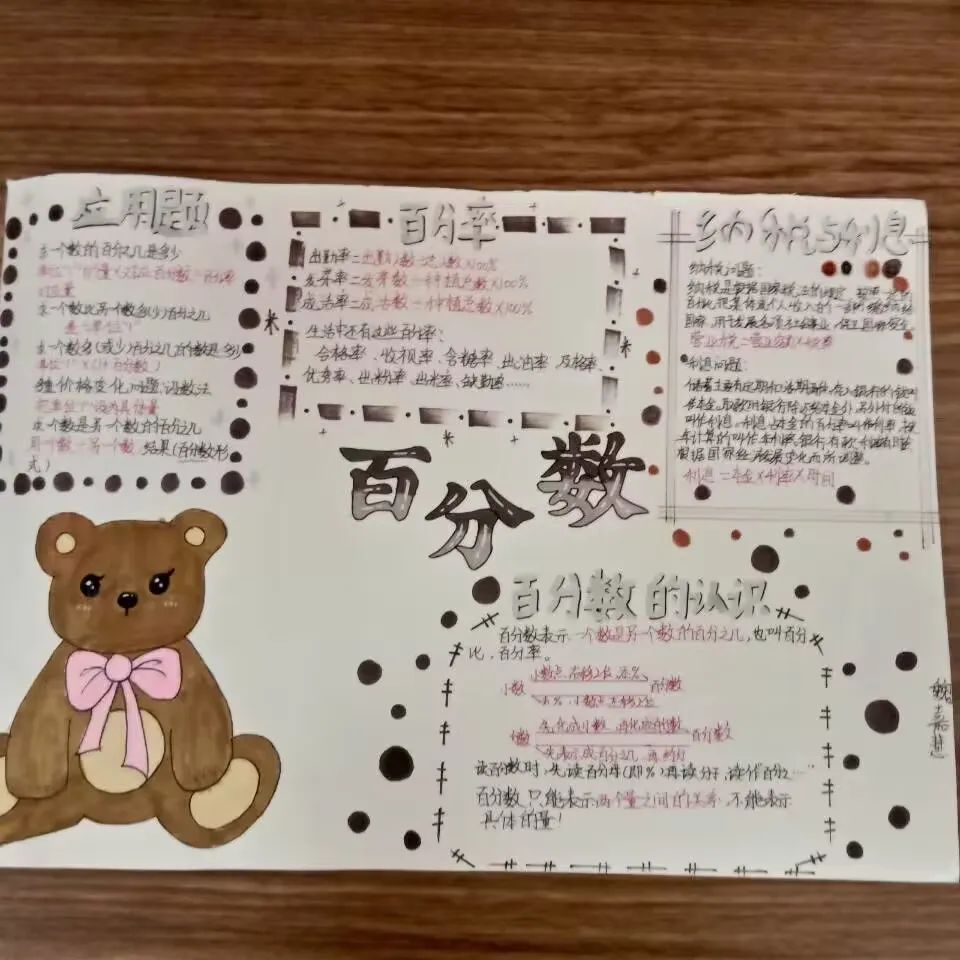 应用题
求一个数的百分之几是多少
单位"1"的量×对应百分数=百分率
对应量
求一个数比另一个数多(少)百分之几
差÷单位"1"
求一个数多(或少)百分之几的数是多少
单位"1"×(1±百分数)
价格变化问题:设数法
把单位"1"设为具体量
求一个数是另一个数的百分之几
用一个数÷另一个数 结果(百分数形
式)
百分率
出勤率=出勤人数÷总人数×100%
发芽率=发芽数÷种植总数×100%
成活率=成活数÷种植总数×100%
生活中还有这些百分率:
合格率、收视率、含糖率、出油率、及格率、
优秀率、出粉率、出米率、缺勤率……
纳税与利息
纳税问题:
纳税是根据国家税法的规定,按照一定的
百分比把集体或个人收入的一部分缴纳给
国家,用于发展各项社会事业,保卫国家安全。
利息问题:
叫作利息。利息占本金的百分率叫作利率。按
年计算的叫作年利率。银行存款利率有时会
根据国家经济发展变化而所调整。
利息=本金×利率×时间
百分数
百分数的认识
百分数表示一个数是另一个数的百分之几,也叫百分
比,百分率。
小数点右移2位,添%
小数 百分数
去%,小数点左移2位
先化成小数,再化成百分数
分数 百分数
先表示成百分之几,再约分
读百分数时,先读百分率(即%)再读分子,读作百分之…
百分数只能表示两个量之间的关系,不能表示
具体的量!
魏嘉慧